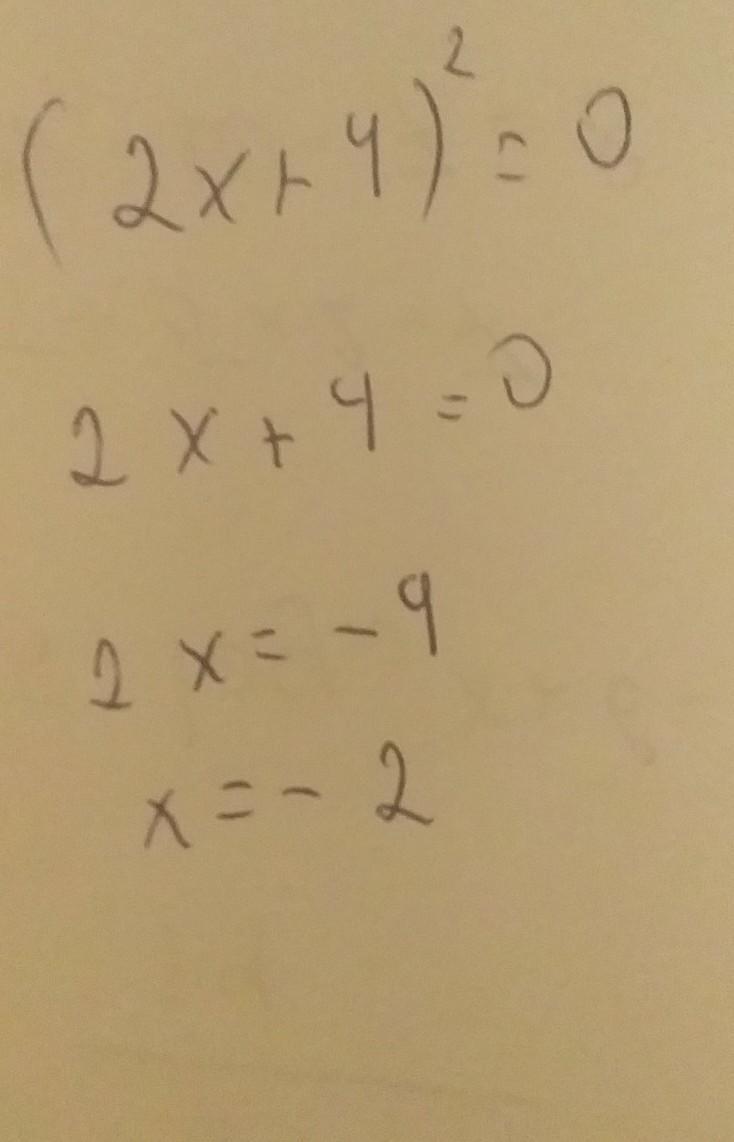 (2x+4)² = 0
2x+4=0
2x=-4
x=-2